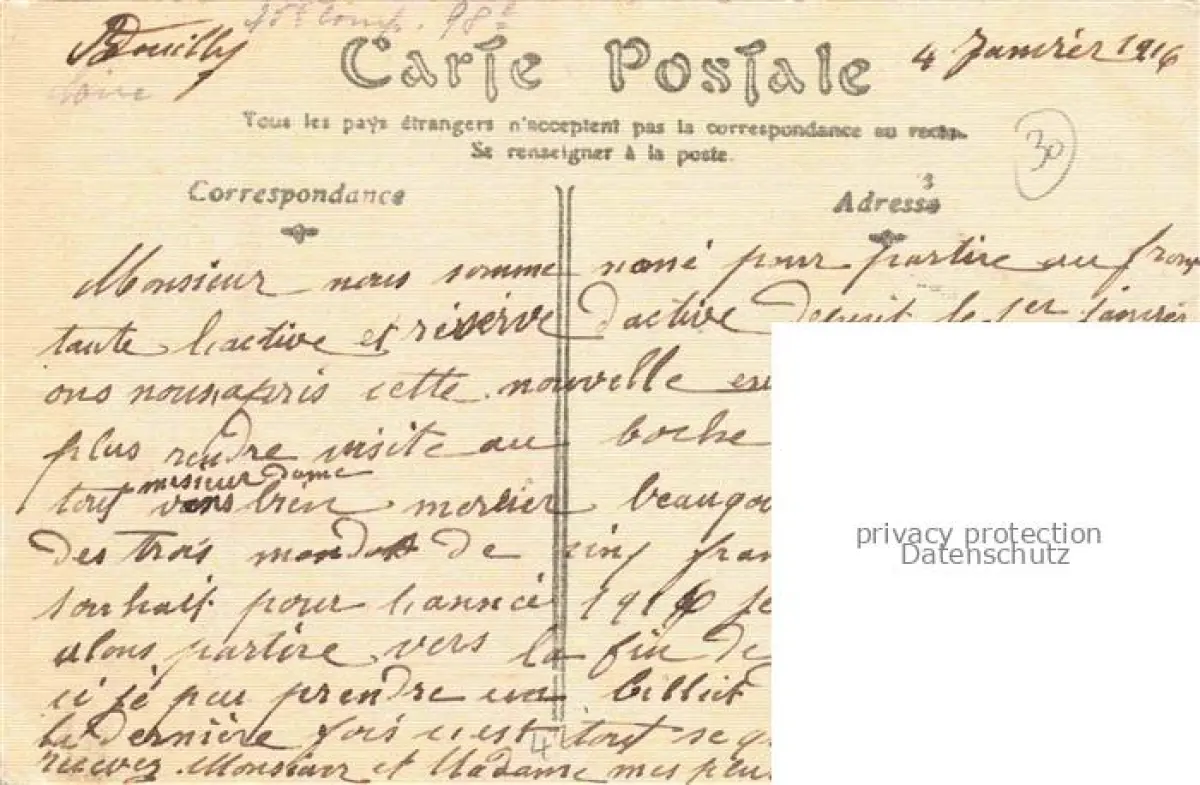 15e Comp. 98e
Bouilly 4 Janvièr 1916
Loire
Carte Postale
Tous les pays étrangers n'acceptent pas la correspondance au recto.
Se renseigner à la poste.
30
Correspondance
3
Adresse
Monsieur nous somme nomé pour partire au fron
toute l'active et réserve d'active depuit le 1er janvier
ons nous apris cette nouvelle
plus rendre visite au boche
messieur dame
tout bien mercier beaugou
des trois mandat de cinq fran
souhait pour l'anneé 1916 je
alons partire vers la fin de
ci jé pur prendre un billiet
la dernière fois c'est tout se q
4
recevez Monsieur et Madame mes plu
privacy protection
Datenschutz